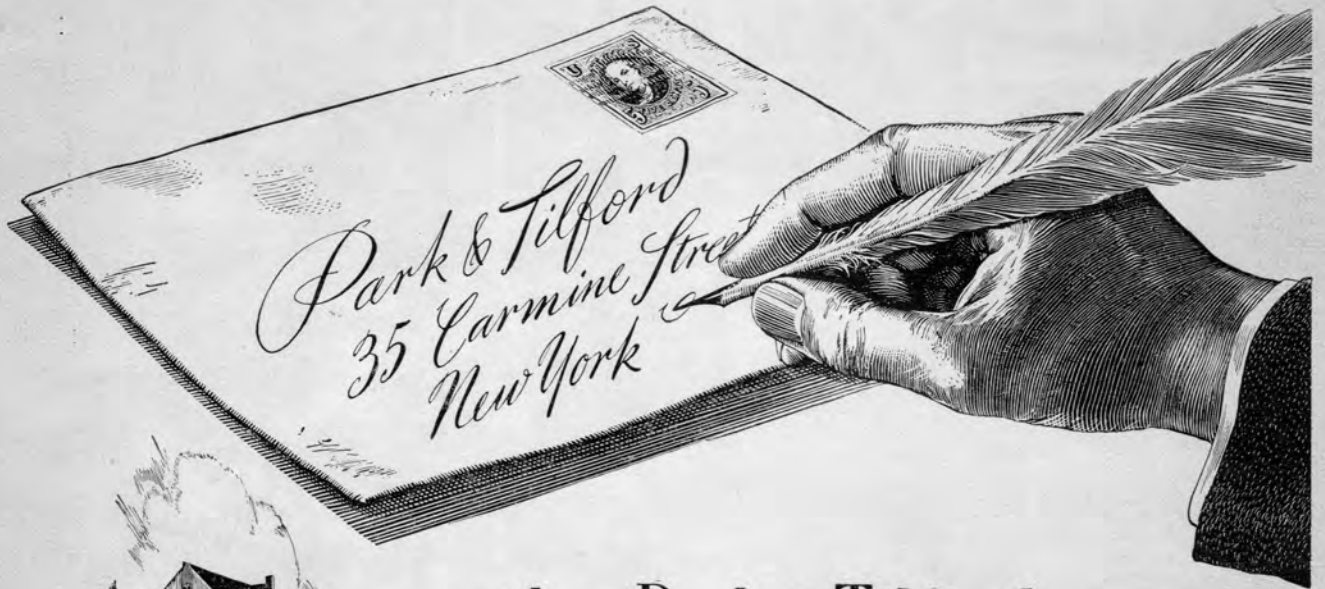 Park & Tilford
35 Carmine Street
New York